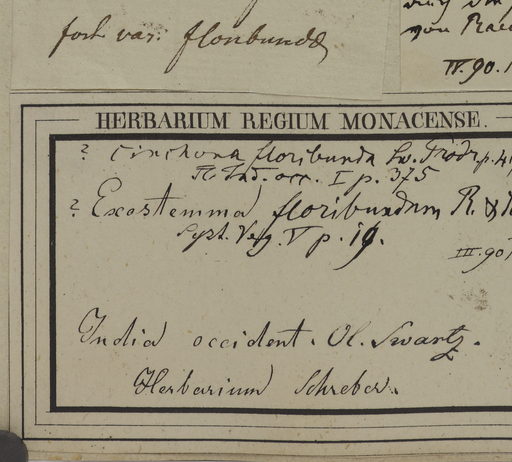 fort var. floribunda
IV.90.
HERBARIUM REGIUM MONACENSE.
? Cinchona floribunda Sw. Prodr p. 41
Fl. Ind. occ. I p. 375
? Exostemma floribundum R. &
Syst. Veg. V p. 19.
III.90
India occident. Ol. Swartz.
Herbarium Schreber.